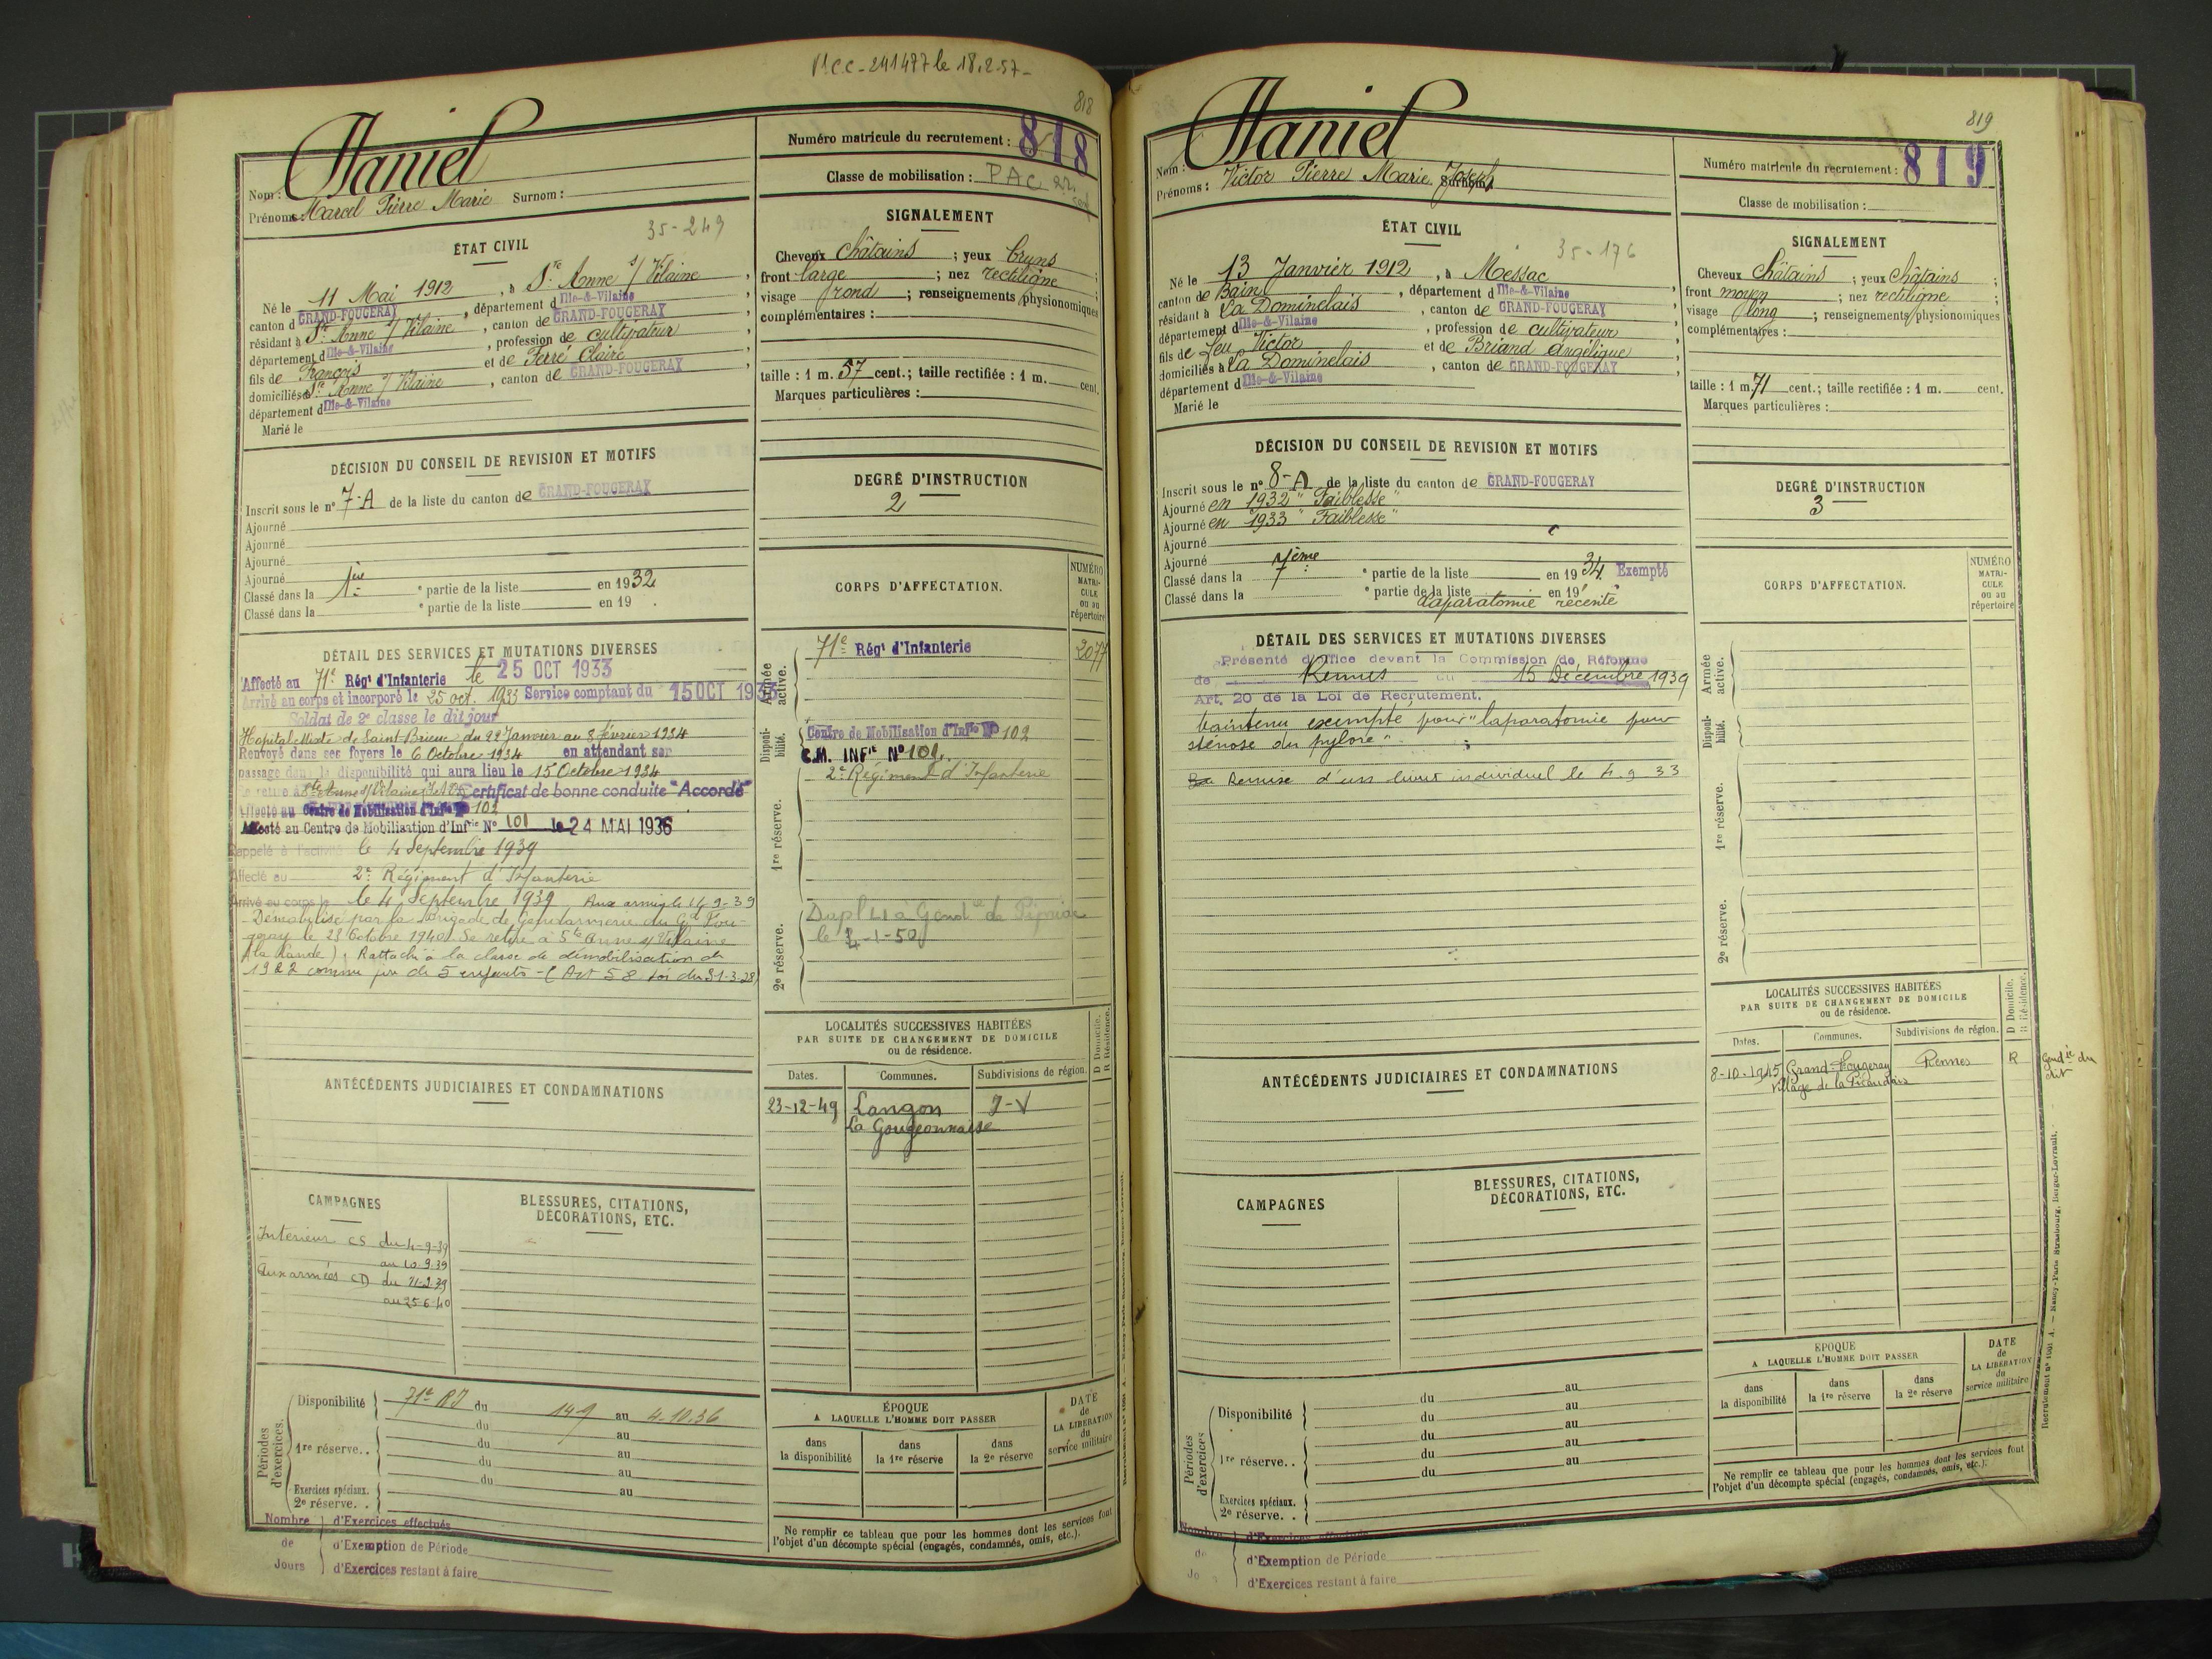 PCC-241477 le 18.2.57-
818
Haniel
Nom :
Prénoms : Marcel Pierre Marie Surnom :
Numéro matricule du recrutement : 818
Classe de mobilisation : PAC 22
ÉTAT CIVIL
35-249
Né le 11 Mai 1912, à Ste Anne s/ Vilaine,
canton d GRAND-FOUGERAY, département d Ille-&-Vilaine,
résidant à Ste Anne s/ Vilaine, canton de GRAND-FOUGERAY,
département d Ille-&-Vilaine, profession de cultivateur,
fils de François et de Ferré Claire,
domiciliés à Ste Anne s/ Vilaine, canton de GRAND-FOUGERAY,
département d Ille-&-Vilaine
Marié le
SIGNALEMENT
Cheveux châtains ; yeux bruns ;
front large ; nez rectiligne ;
visage rond ; renseignements physionomiques
complémentaires :
taille : 1 m. 57 cent.; taille rectifiée : 1 m. cent.
Marques particulières :
DÉCISION DU CONSEIL DE REVISION ET MOTIFS
Inscrit sous le n° 7-A de la liste du canton de GRAND-FOUGERAY
Ajourné
Ajourné
Ajourné
Ajourné
Classé dans la 1ère e partie de la liste en 1932
Classé dans la e partie de la liste en 19 .
DEGRÉ D'INSTRUCTION
2
DÉTAIL DES SERVICES ET MUTATIONS DIVERSES
Affecté au 71e Régt d'Infanterie le 25 OCT 1933
Arrivé au corps et incorporé le 25 oct. 1933 Service comptant du 15 OCT 1933
Soldat de 2e classe le dit jour
Hopital Mixte de Saint-Brieuc du 22 Janvier au 8 février 1934
Renvoyé dans ses foyers le 6 Octobre 1934 en attendant son
passage dans la disponibilité qui aura lieu le 15 Octobre 1934
Se retire à Ste Anne s/ Vilaine I et V. Certificat de bonne conduite "Accordé"
Affecté au Centre de Mobilisation d'Infie N° 102
Affecté au Centre de Mobilisation d'Infrie N° 101 le 24 MAI 1936
Rappelé à l'activité le 4 Septembre 1939
Affecté au 2e Régiment d'Infanterie
Arrivé au corps le le 4 Septembre 1939 Aux armées le 11-9-39
Démobilisé par la Brigade de Gendarmerie du Gd Fou-
geray le 23 Octobre 1940. Se retire à Ste Anne s/ Vilaine
(la Lande). Rattaché à la classe de démobilisation de
1922 comme père de 5 enfants - (Art 58 Loi du 31-3-28)
CORPS D'AFFECTATION.
NUMÉRO MATRICULE ou au répertoire
Armée active.
71e Régt d'Infanterie 2077
Disponibilité.
Centre de Mobilisation d'Infie N° 102
C.M. INFie N° 101.
2e Régiment d'Infanterie
1re réserve.
2e réserve.
Dupl L1 à Gendie de Pipriac
le 4-1-50
ANTÉCÉDENTS JUDICIAIRES ET CONDAMNATIONS
LOCALITÉS SUCCESSIVES HABITÉES
PAR SUITE DE CHANGEMENT DE DOMICILE
ou de résidence.
D Domicile.
R Résidence.
Dates. Communes. Subdivisions de région.
23-12-49 Langon I-V
La Gougeonnaise
CAMPAGNES
Intérieur CS du 4-9-39
au 10.9.39
Aux armées CD du 11-9-39
au 25 6 40
BLESSURES, CITATIONS,
DÉCORATIONS, ETC.
Périodes d'exercices.
Disponibilité 71e RI du 14-9 au 4-10.36
du au
du au
1re réserve.. du au
du au
Exercices spéciaux. au
2e réserve. .
Nombre de Jours
d'Exercices effectués
d'Exemption de Période
d'Exercices restant à faire
ÉPOQUE
A LAQUELLE L'HOMME DOIT PASSER
dans la disponibilité
dans la 1re réserve
dans la 2e réserve
DATE de LA LIBÉRATION du service militaire
Ne remplir ce tableau que pour les hommes dont les services font
l'objet d'un décompte spécial (engagés, condamnés, omis, etc.).
819
Haniel
Nom :
Prénoms : Victor Pierre Marie Joseph
Surnom
Numéro matricule du recrutement : 819
Classe de mobilisation :
ÉTAT CIVIL
35-176
Né le 13 Janvier 1912, à Messac,
canton de Bain, département d Ille-&-Vilaine
résidant à La Dominelais, canton de GRAND-FOUGERAY,
département d Ille-&-Vilaine, profession de cultivateur,
fils de feu Victor et de Briand Angélique,
domiciliés à La Dominelais, canton de GRAND-FOUGERAY,
département d Ille-&-Vilaine
Marié le
SIGNALEMENT
Cheveux châtains ; yeux châtains ;
front moyen ; nez rectiligne ;
visage long ; renseignements physionomiques
complémentaires :
taille : 1 m. 71 cent.; taille rectifiée : 1 m. cent.
Marques particulières :
DÉCISION DU CONSEIL DE REVISION ET MOTIFS
Inscrit sous le n° 8-A de la liste du canton de GRAND-FOUGERAY
Ajourné en 1932 "Faiblesse"
Ajourné en 1933 "Faiblesse"
Ajourné
Ajourné
Classé dans la 7ème e partie de la liste en 1934 Exempté
Classé dans la e partie de la liste en 19
Laparatomie récente
DEGRÉ D'INSTRUCTION
3
DÉTAIL DES SERVICES ET MUTATIONS DIVERSES
Présenté d'office devant la Commission de Réforme
de Rennes du 15 Décembre 1939
Art. 20 de la Loi de Recrutement.
Maintenu exempté pour "laparatomie pour
sténose du pylore"
Remise d'un livret individuel le 4.9 33
CORPS D'AFFECTATION.
NUMÉRO MATRICULE ou au répertoire
Armée active.
Disponibilité.
1re réserve.
2e réserve.
ANTÉCÉDENTS JUDICIAIRES ET CONDAMNATIONS
LOCALITÉS SUCCESSIVES HABITÉES
PAR SUITE DE CHANGEMENT DE DOMICILE
ou de résidence.
D Domicile.
R Résidence.
Dates. Communes. Subdivisions de région.
8-10-1945 Grand-Fougeray Rennes R Gendie du dit
Village de la
CAMPAGNES
BLESSURES, CITATIONS,
DÉCORATIONS, ETC.
Périodes d'exercices
Disponibilité du au
du au
du au
1re réserve. . du au
du au
Exercices spéciaux.
2e réserve. .
Nombre de Jo
d'Exercices effectués
d'Exemption de Période
d'Exercices restant à faire
ÉPOQUE
A LAQUELLE L'HOMME DOIT PASSER
dans la disponibilité
dans la 1re réserve
dans la 2e réserve
DATE de LA LIBÉRATION du service militaire
Ne remplir ce tableau que pour les hommes dont les services font
l'objet d'un décompte spécial (engagés, condamnés, omis, etc.).
Nancy-Paris Strasbourg, Berger-Levrault.